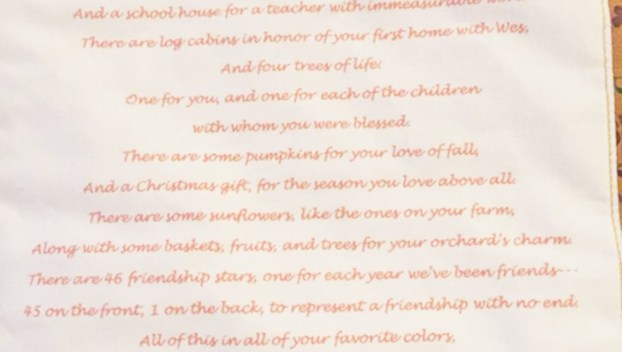 And a school house for a teacher with immeasurable
There are log cabins in honor of your first home with Wes,
And four trees of life:
One for you, and one for each of the children
with whom you were blessed.
There are some pumpkins for your love of fall,
And a Christmas gift, for the season you love above all.
There are some sunflowers, like the ones on your farm,
Along with some baskets, fruits, and trees for your orchard's charm.
There are 46 friendship stars, one for each year we've been friends---
45 on the front, 1 on the back, to represent a friendship with no end.
All of this in all of your favorite colors,